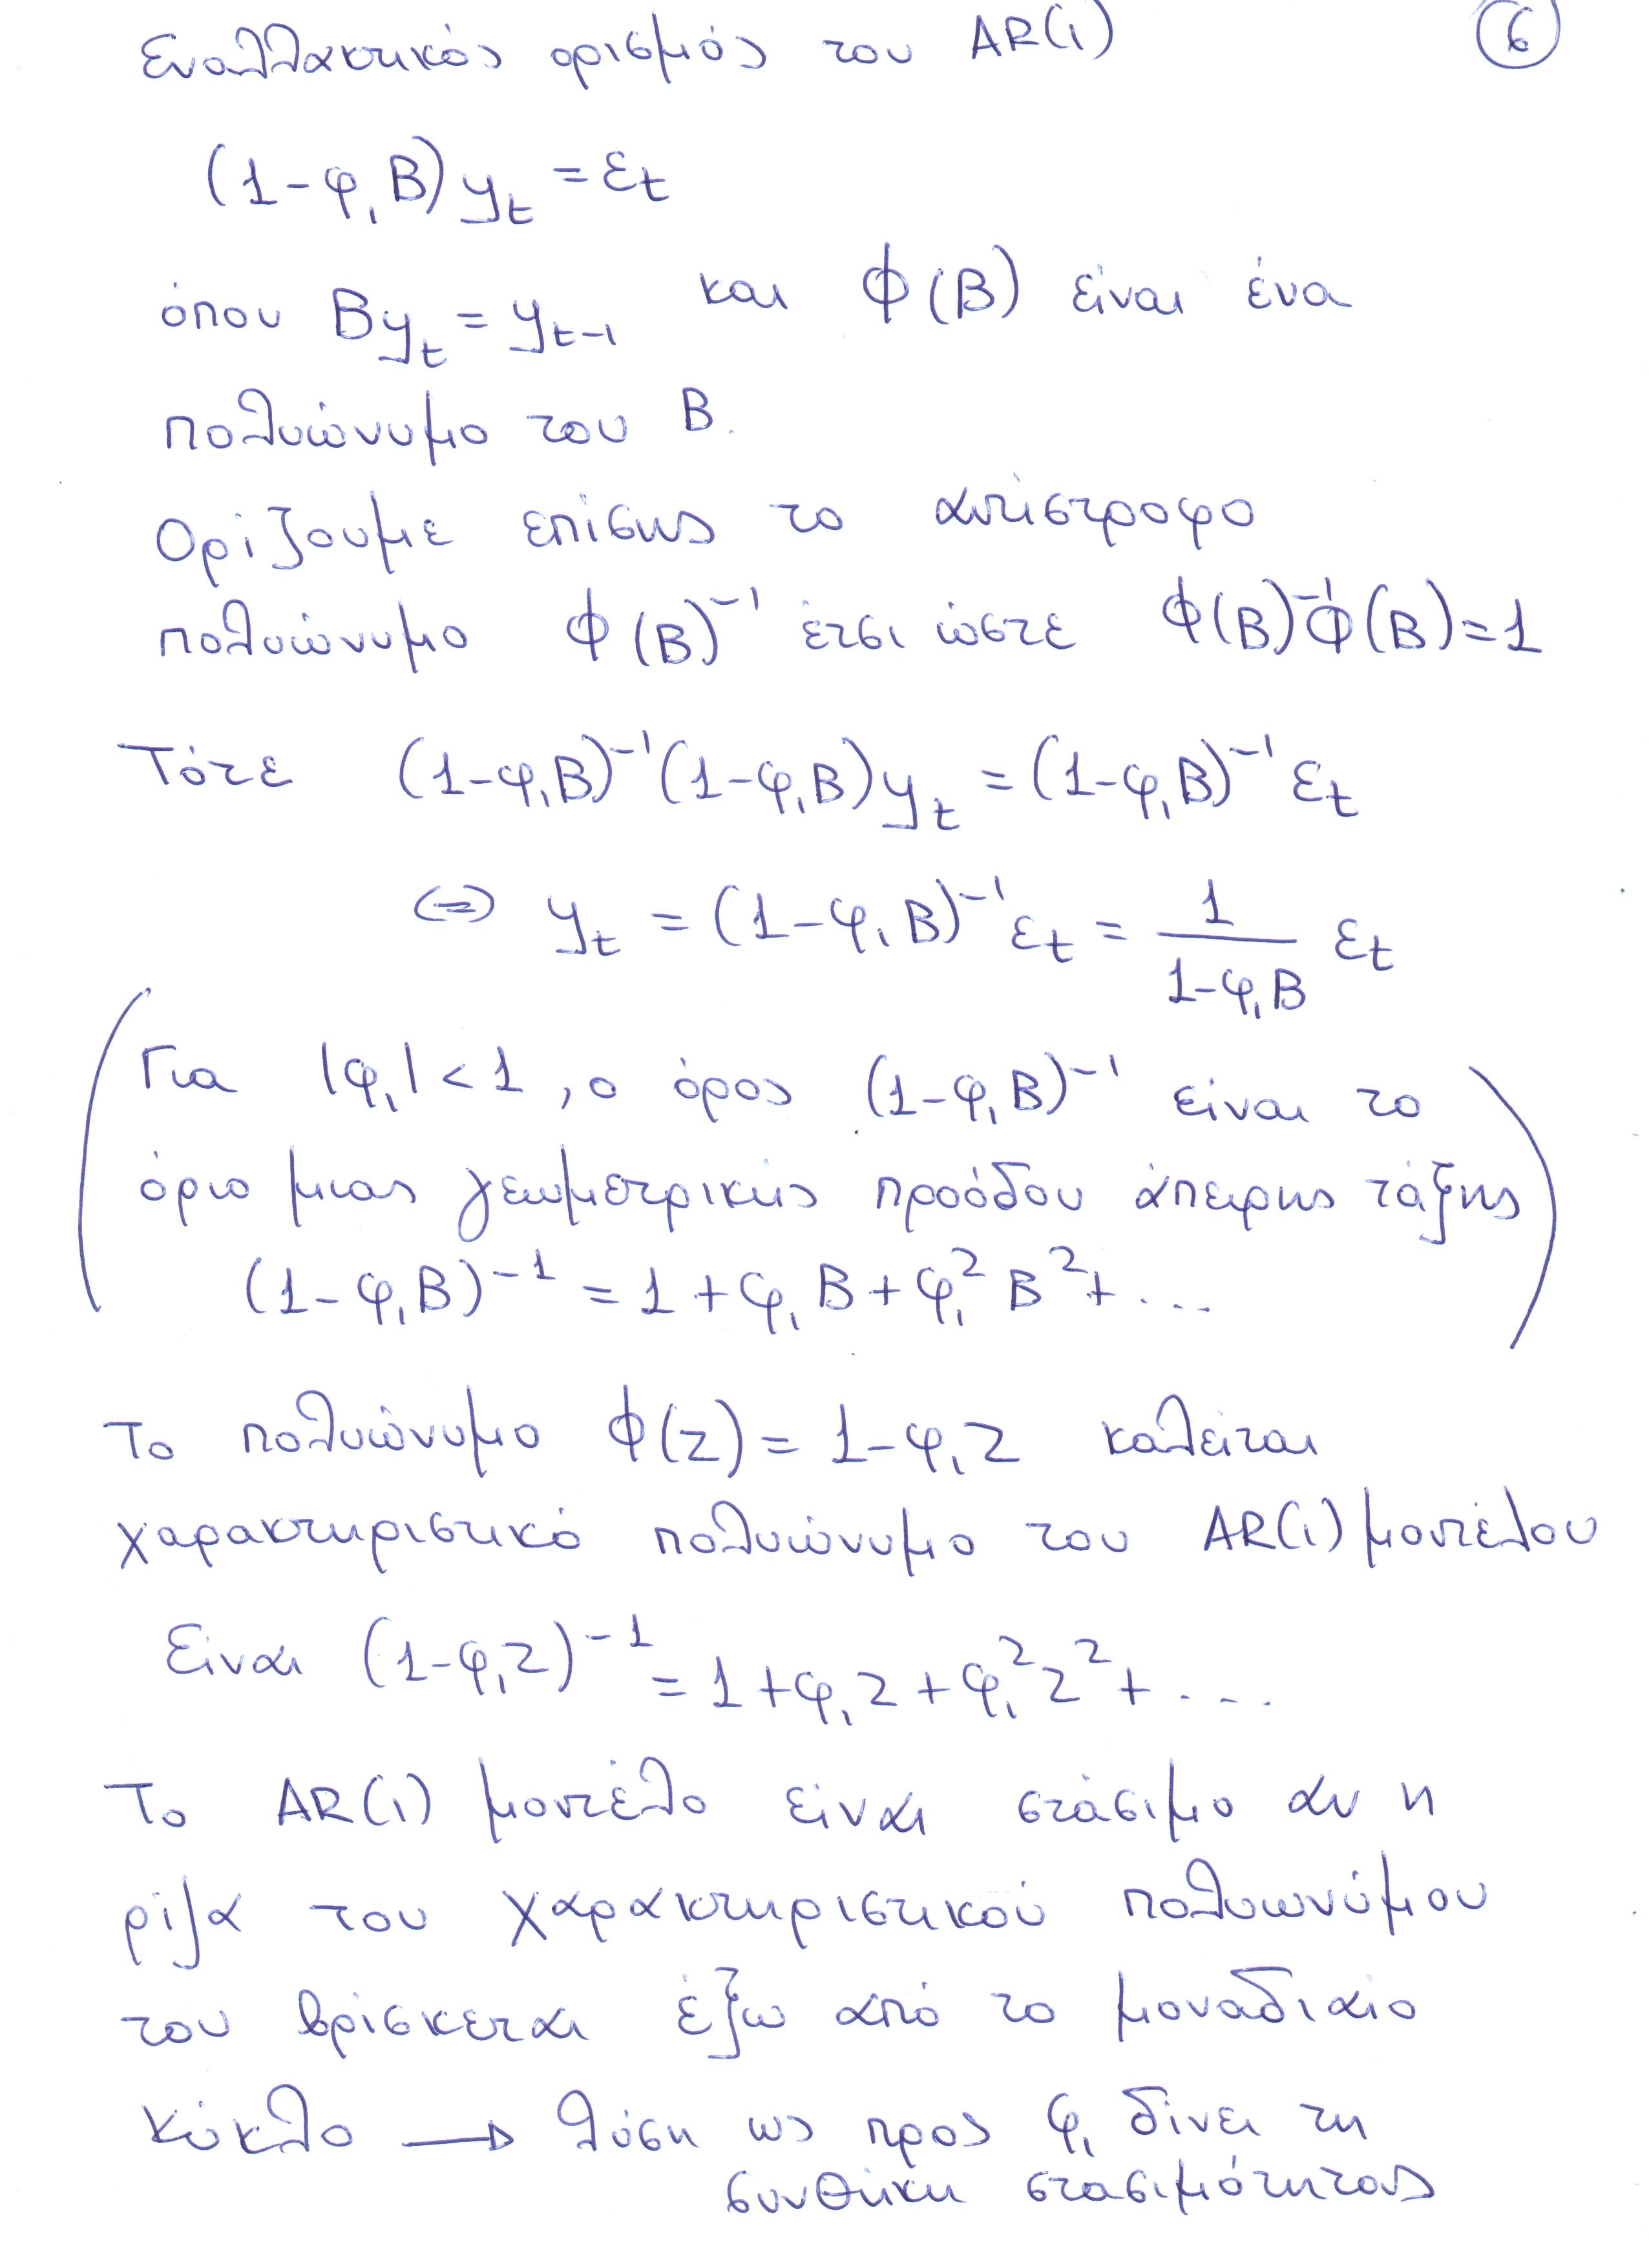 Εναλλακτικός ορισμός του AR(1) 6
(1-φ₁B)yₜ = εₜ
όπου Byₜ = yₜ₋₁ και Φ(B) είναι ένα
πολυώνυμο του B.
Ορίζουμε επίσης το αντίστροφο
πολυώνυμο Φ(B)⁻¹ έτσι ώστε Φ(B)⁻¹Φ(B)=1
Τότε (1-φ₁B)⁻¹(1-φ₁B)yₜ = (1-φ₁B)⁻¹εₜ
⇔ yₜ = (1-φ₁B)⁻¹εₜ = 1/(1-φ₁B) εₜ
(Για |φ₁|<1, ο όρος (1-φ₁B)⁻¹ είναι το
όριο μιας γεωμετρικής προόδου άπειρης τάξης
(1-φ₁B)⁻¹ = 1+φ₁B+φ₁²B²+...)
Το πολυώνυμο Φ(z) = 1-φ₁z καλείται
χαρακτηριστικό πολυώνυμο του AR(1) μοντέλου
Είναι (1-φ₁z)⁻¹ = 1+φ₁z+φ₁²z²+....
Το AR(1) μοντέλο είναι στάσιμο αν η
ρίζα του χαρακτηριστικού πολυωνύμου
του βρίσκεται έξω από το μοναδιαίο
κύκλο → λύση ως προς φ₁ δίνει τη
συνθήκη στασιμότητας